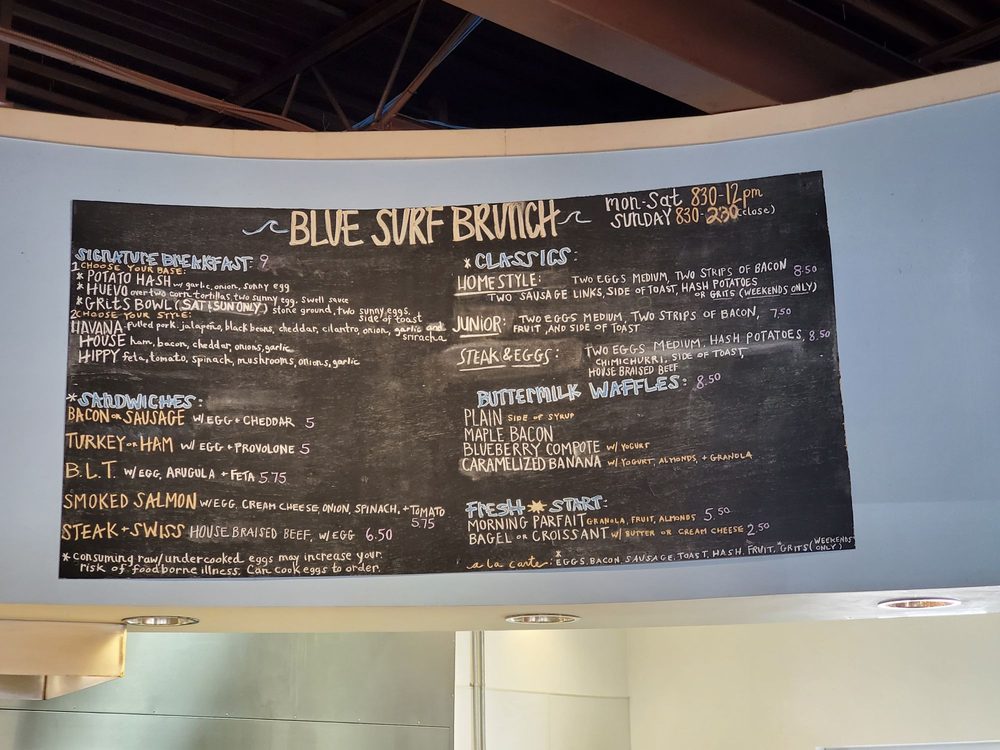 BLUE SURF BRUNCH
mon-Sat 830-12pm
SUNDAY 830-230 (close)
SIGNATURE BREAKFAST: 9
1 CHOOSE YOUR BASE:
* POTATO HASH w/ garlic, onion, sunny egg
* HUEVO over two corn tortillas, two sunny egg, swell sauce
* GRITS BOWL (SAT & SUN ONLY) stone ground, two sunny eggs, side of toast
2 CHOOSE YOUR STYLE:
HAVANA pulled pork, jalapeño, black beans, cheddar, cilantro, onion, garlic and sriracha
HOUSE ham, bacon, cheddar, onions, garlic
HIPPY feta, tomato, spinach, mushrooms, onions, garlic
* SANDWICHES:
BACON OR SAUSAGE W/ EGG + CHEDDAR 5
TURKEY OR HAM W/ EGG + PROVOLONE 5
B.L.T. W/ EGG, ARUGULA + FETA 5.75
SMOKED SALMON W/ EGG, CREAM CHEESE, ONION, SPINACH, + TOMATO 5.75
STEAK + SWISS HOUSE BRAISED BEEF, W/ EGG 6.50
* consuming raw/undercooked eggs may increase your
risk of foodborne illness. Can cook eggs to order.
* CLASSICS:
HOMESTYLE: TWO EGGS MEDIUM, TWO STRIPS OF BACON 8.50
TWO SAUSAGE LINKS, SIDE OF TOAST, HASH POTATOES
OR GRITS (WEEKENDS ONLY)
JUNIOR: TWO EGGS MEDIUM, TWO STRIPS OF BACON, 7.50
FRUIT, AND SIDE OF TOAST
STEAK & EGGS: TWO EGGS MEDIUM, HASH POTATOES, 8.50
CHIMICHURRI, SIDE OF TOAST
HOUSE BRAISED BEEF
BUTTERMILK WAFFLES: 8.50
PLAIN SIDE OF SYRUP
MAPLE BACON
BLUEBERRY COMPOTE W/ YOGURT
CARAMELIZED BANANA W/ YOGURT, ALMONDS, + GRANOLA
FRESH START:
MORNING PARFAIT GRANOLA, FRUIT, ALMONDS 5.50
BAGEL OR CROISSANT W/ BUTTER OR CREAM CHEESE 2.50
a la carte: *EGGS, BACON, SAUSAGE, TOAST, HASH, FRUIT, *GRITS (WEEKENDS ONLY)